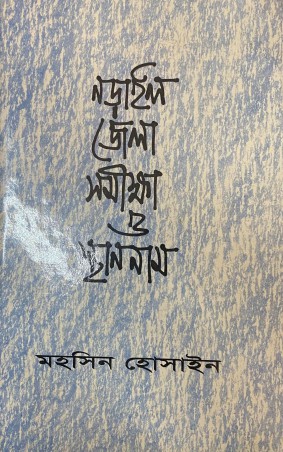 নড়াইল
জেলা
সমীক্ষা
ও
স্থাননাম
মহসিন হোসাইন